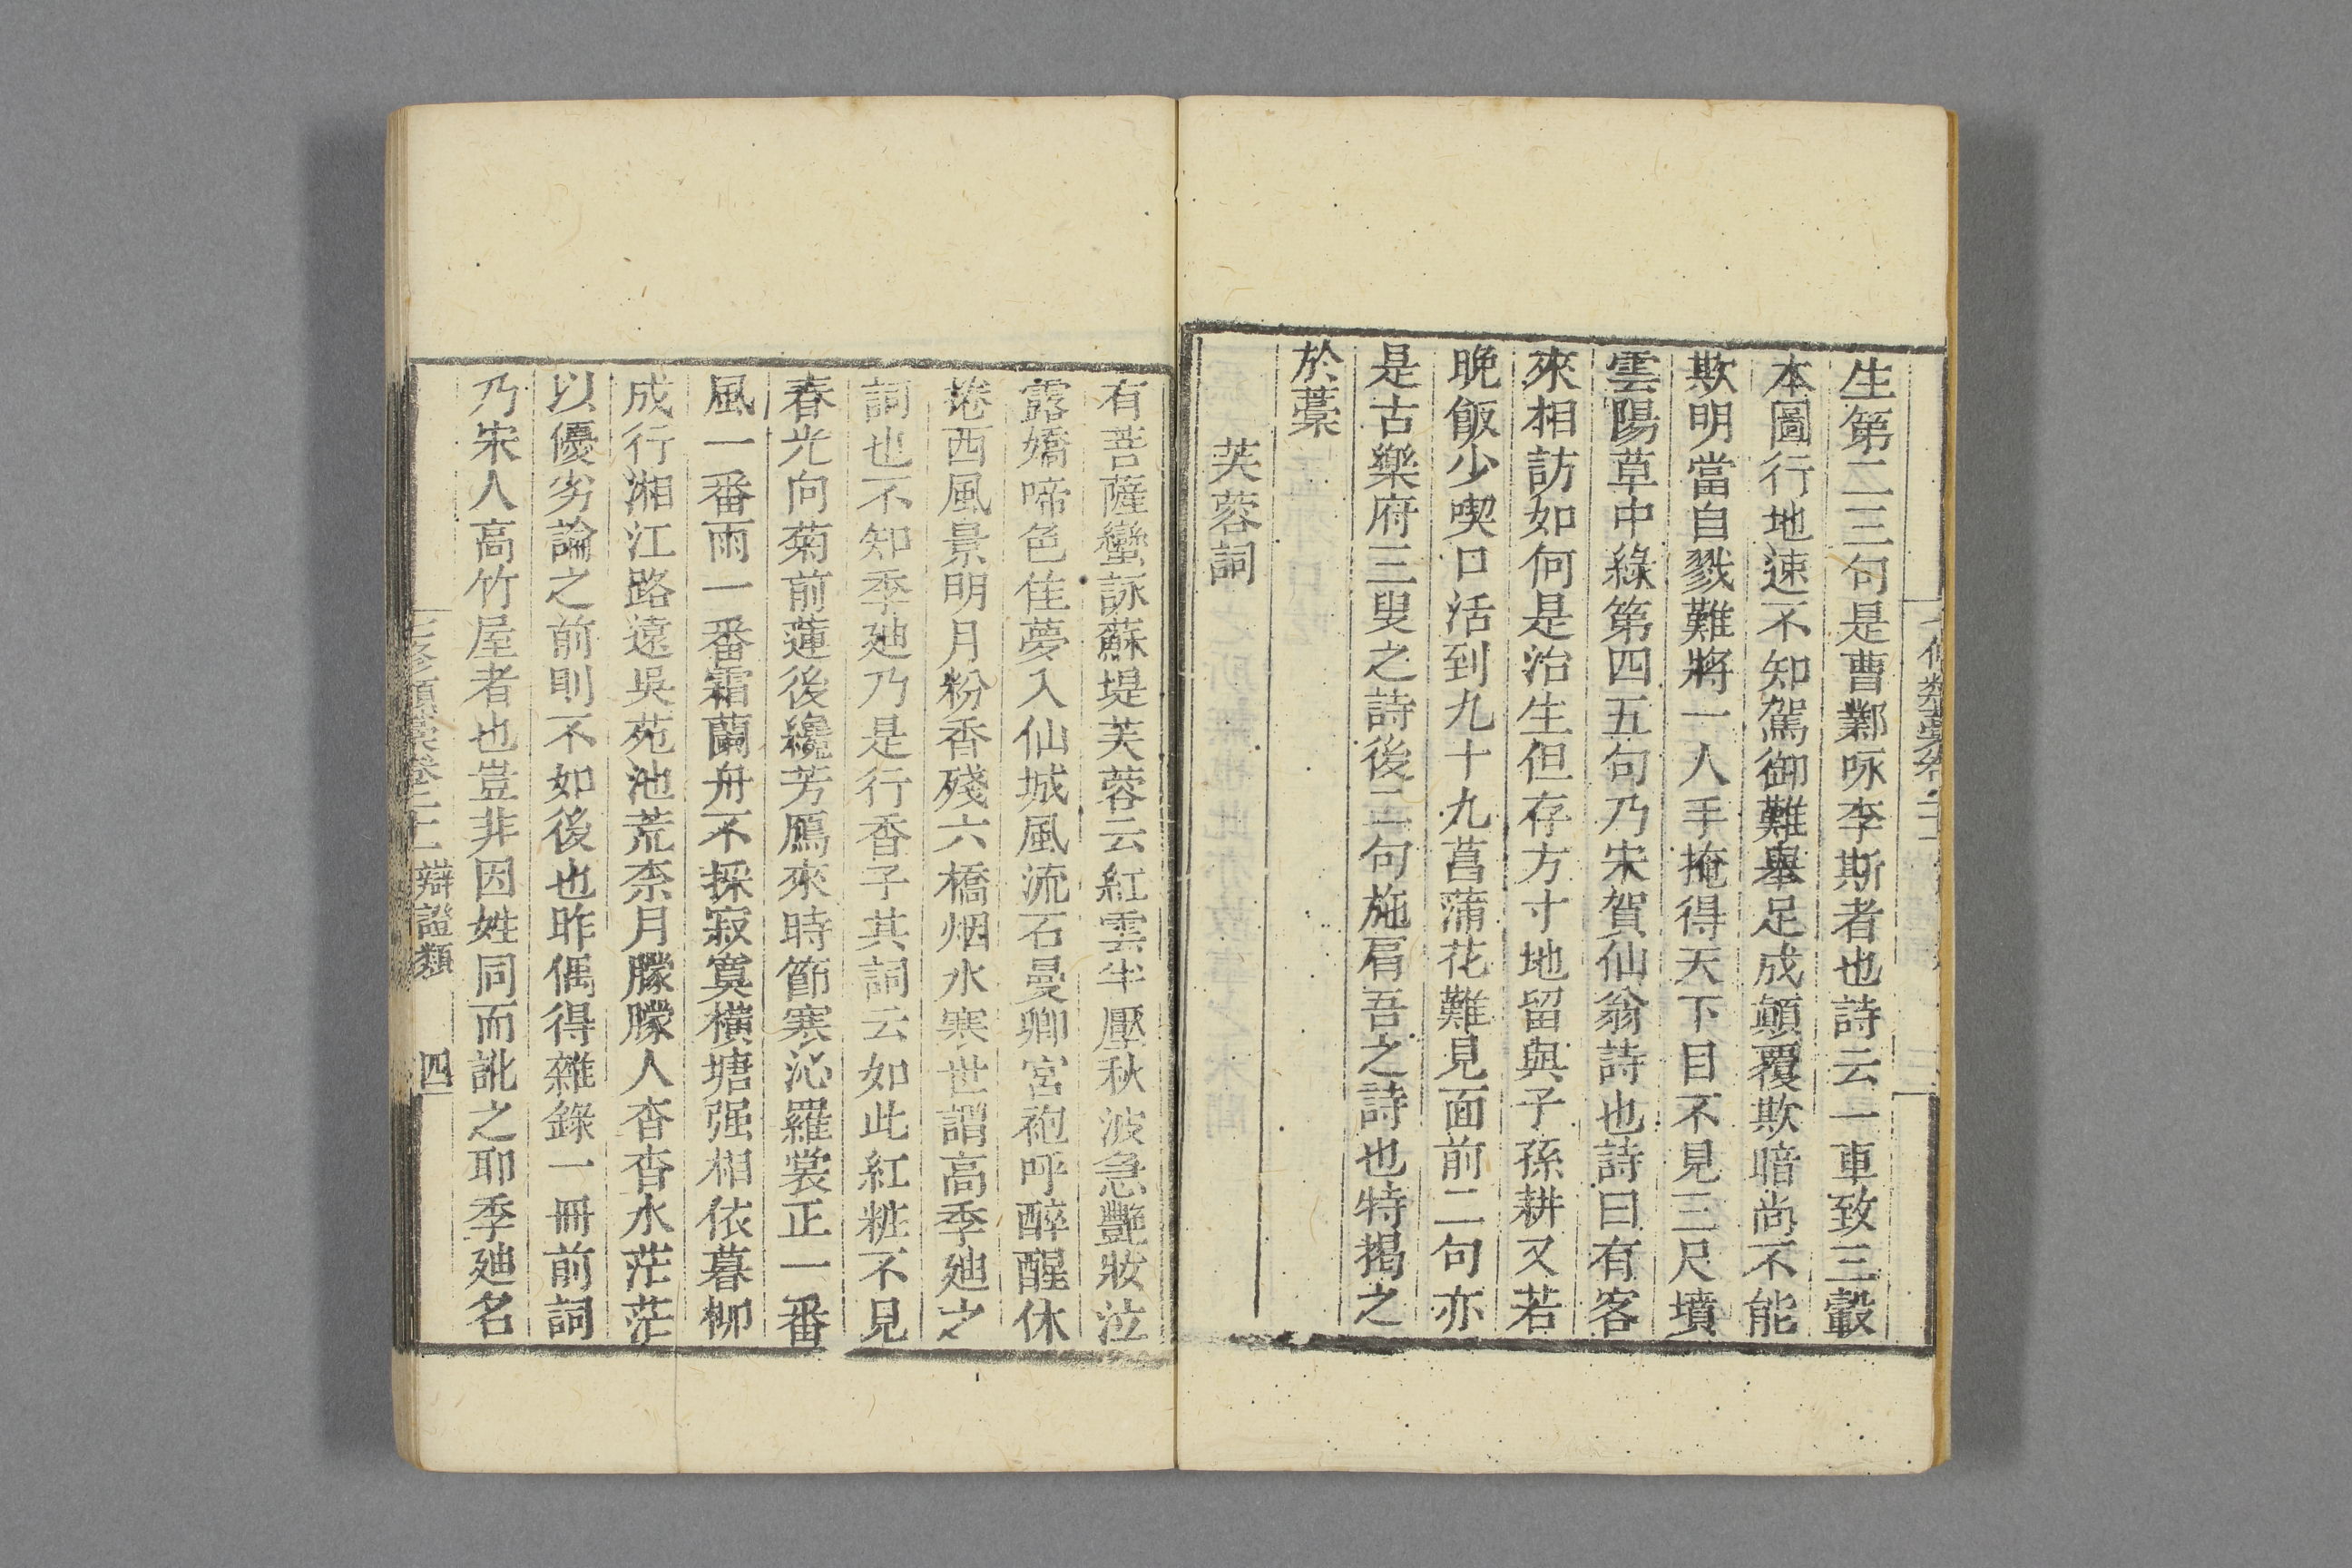 生第二三句是曹鄴咏李斯者也詩云一車致三轂
本圖行地速不知駕御難舉足成顛覆欺暗尚不能
欺明當自戮難將一人手掩得天下目不見三尺墳
雲陽草中綠第四五句乃宋賀仙翁詩也詩曰有客
來相訪如何是治生但存方寸地留與子孫耕又若
晚飯少喫口活到九十九菖蒲花難見面前二句亦
是古樂府三叟之詩後二句施肩吾之詩也特揭之
於藁
芙蓉詞
有菩薩蠻詠蘇堤芙蓉云紅雲半壓秋波急艷妝泣
露嬌啼色佳夢入仙城風流石曼卿宮袍呼醉醒休
捲西風景明月粉香殘六橋烟水寒世謂高季廸之
詞也不知季廸乃是行香子其詞云如此紅粧不見
春光向菊前蓮後纔芳鴈來時節寒沁羅裳正一番
風一番雨一番霜蘭舟不採寂寞橫塘强相依暮柳
成行湘江路遠吳苑池荒柰月朦朦人杳杳水茫茫
以優劣論之前則不如後也昨偶得雜錄一冊前詞
乃宋人高竹屋者也豈非因姓同而訛之耶季廸名
七修類藁卷二十 辯證類 四